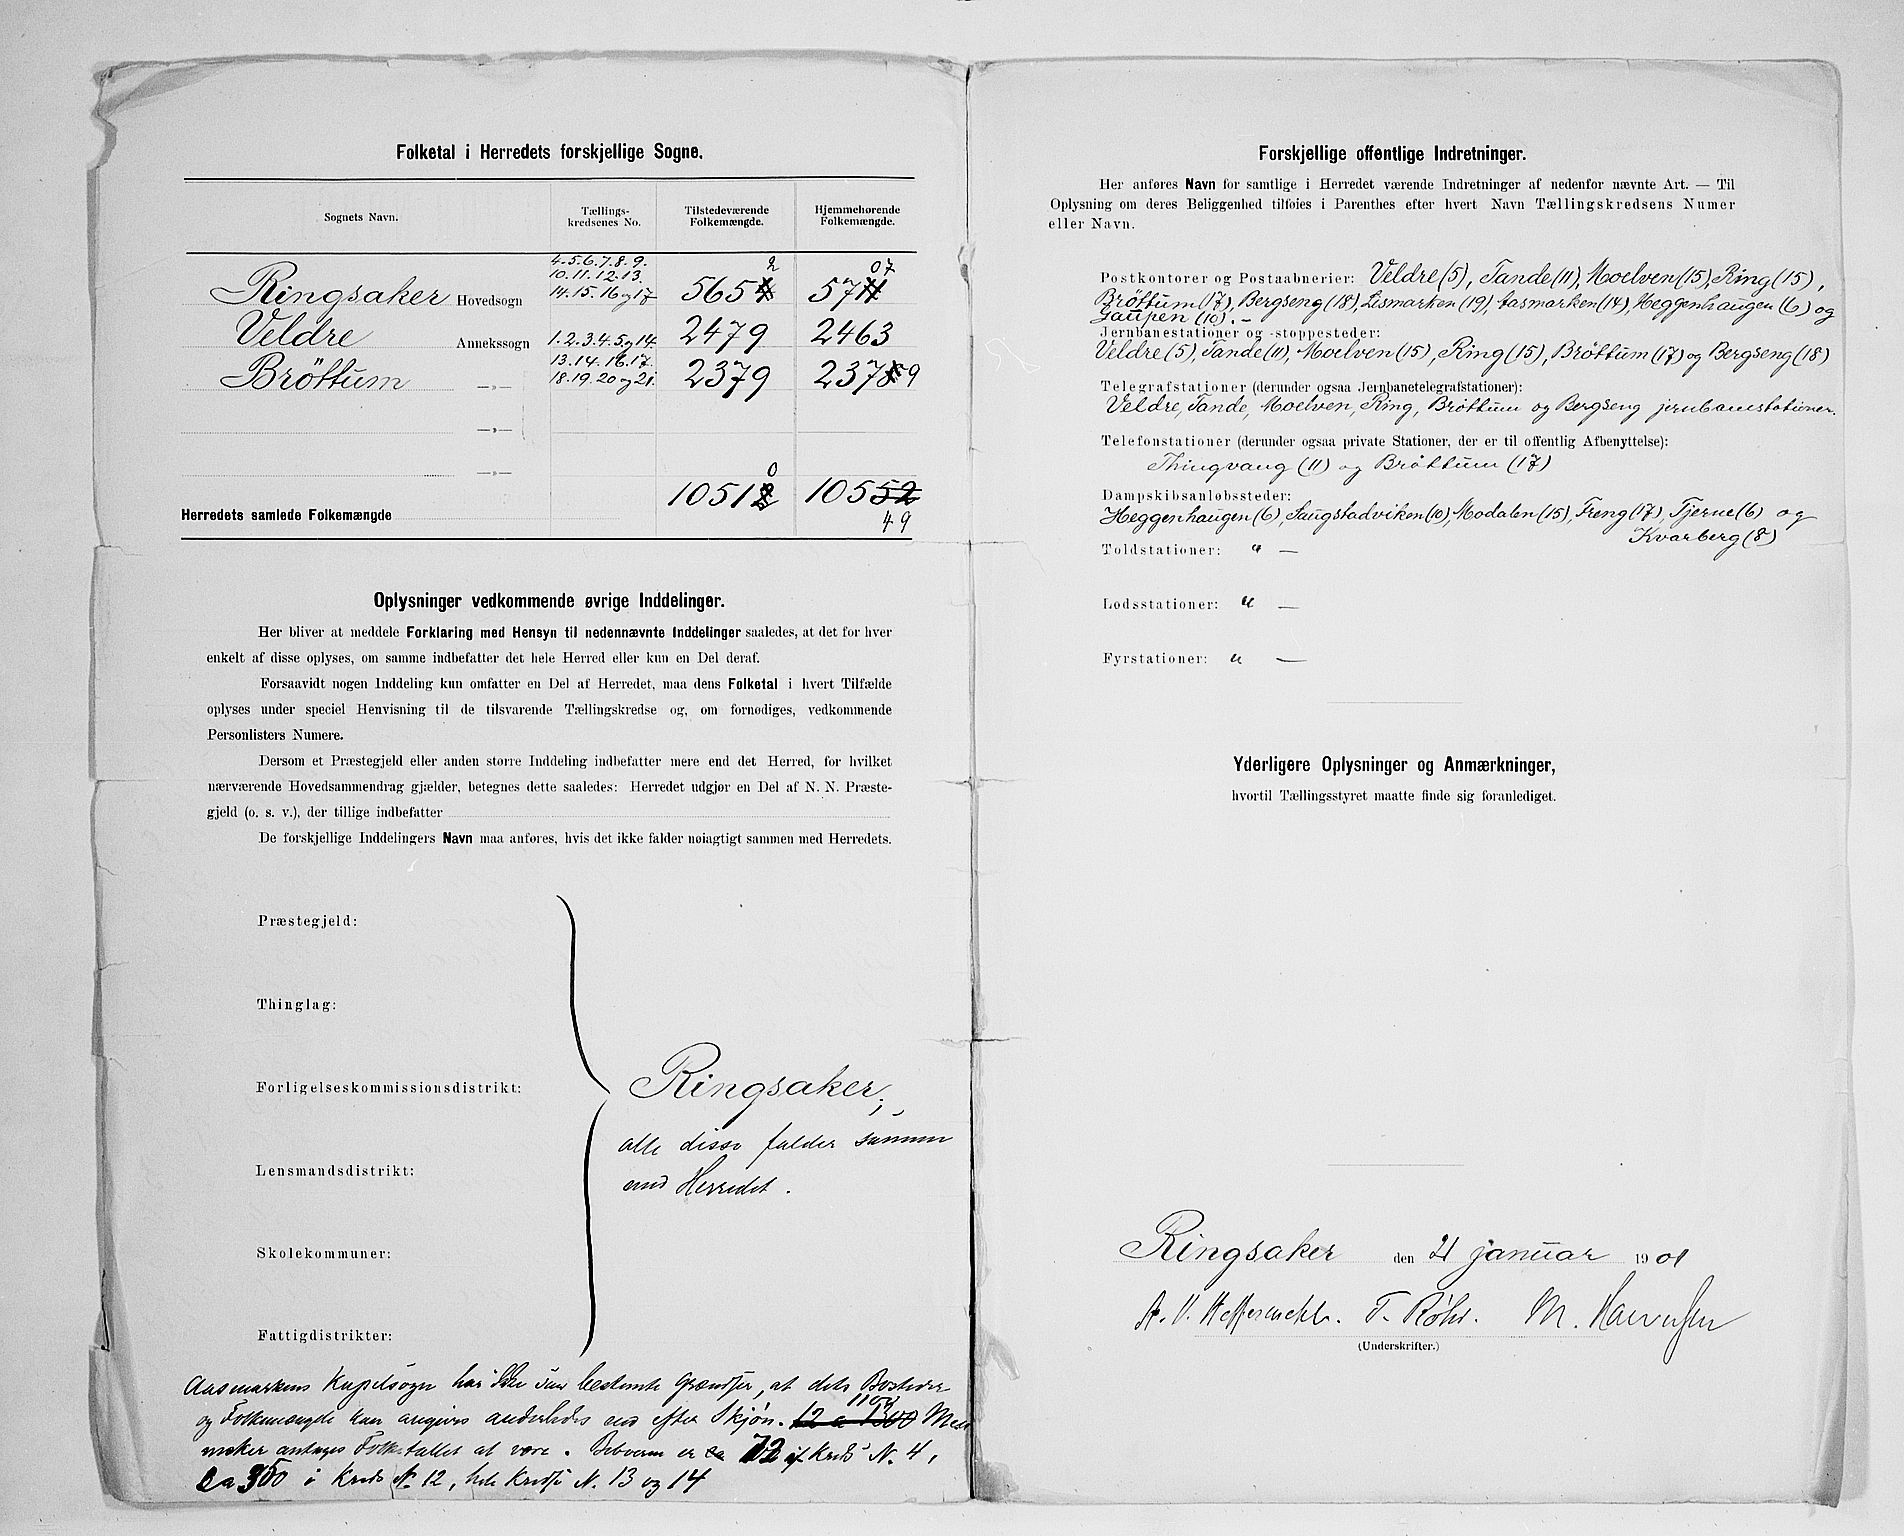 Folketal i Herredets forskjellige Sogne.
Sognets Navn.
Tællings-
kredsenes No.
Tilstedeværende
Folkemængde.
Hjemmehørende
Folkemængde.
4.5.6.7.8.9.
10.11.12.13.
Ringsaker Hovedsogn 14.15.16 og 17 5652 5707
Veldre Annekssogn 1.2.3.4.5 og 14. 2479 2463
13.14.16.17.
Bröttum —„— 18.19.20 og 21. 2379 2379
—„—
—„—
Herredets samlede Folkemængde 10510 10549
Oplysninger vedkommende øvrige Inddelinger.
Her bliver at meddele Forklaring med Hensyn til nedennævnte Inddelinger saaledes, at det for hver
enkelt af disse oplyses, om samme indbefatter det hele Herred eller kun en Del deraf.
Forsaavidt nogen Inddeling kun omfatter en Del af Herredet, maa dens Folketal i hvert Tilfælde
oplyses under speciel Henvisning til de tilsvarende Tællingskredse og, om fornødiges, vedkommende
Personlisters Numere.
Dersom et Præstegjeld eller anden større Inddeling indbefatter mere end det Herred, for hvilket
nærværende Hovedsammendrag gjælder, betegnes dette saaledes: Herredet udgjør en Del af N. N. Præste-
gjeld (o. s. v.), der tillige indbefatter
De forskjellige Inddelingers Navn maa anføres, hvis det ikke falder nøiagtigt sammen med Herredets.
Præstegjeld:
Thinglag:
Forligelseskommissionsdistrikt:
Lensmandsdistrikt:
Skolekommuner:
Fattigdistrikter:
Ringsaker;
alle disse falder sammen
med Herredet.
Aasmarkens Kapelsogn har ikke saa bestemte Grændser, at dets Bosteder
og Folkemængde kan angives anderledes end efter Skjøn. 12 a 1300 1100 Men
nesker antages Folketallet at være. Beboerne er ca 72 af Kreds N. 4,
ca 350 i Kreds N. 12, hele Kredse N. 13 og 14
Forskjellige offentlige Indretninger.
Her anføres Navn for samtlige i Herredet værende Indretninger af nedenfor nævnte Art. — Til
Oplysning om deres Beliggenhed tilføies i Parenthes efter hvert Navn Tællingskredsens Numer
eller Navn.
Postkontorer og Postaabnerier: Veldre (5), Tande (11), Moelven (15), Ring (15),
Bröttum (17), Bergseng (18), Lismarken (19), Aasmarken (14), Heggenhaugen (6) og
Gaupen (10). —
Jernbanestationer og -stoppesteder:
Veldre (5), Tande (11), Moelven (15), Ring (15), Bröttum (17) og Bergseng (18)
Telegrafstationer (derunder ogsaa Jernbanetelegrafstationer):
Veldre, Tande, Moelven, Ring, Bröttum og Bergseng jernbanestationer.
Telefonstationer (derunder ogsaa private Stationer, der er til offentlig Afbenyttelse):
Thingvang (11) og Bröttum (17)
Dampskibsanløbssteder:
Heggenhaugen (6), Saugstadviken (10), Modalen (15), Freng (17), Tjerne (6) og
Kvarberg (8)
Toldstationer: " —
Lodsstationer: " —
Fyrstationer: " —
Yderligere Oplysninger og Anmærkninger,
hvortil Tællingsstyret maatte finde sig foranlediget.
Ringsaker den 21 januar 1901
T. Röhr. M.
(Underskrifter.)